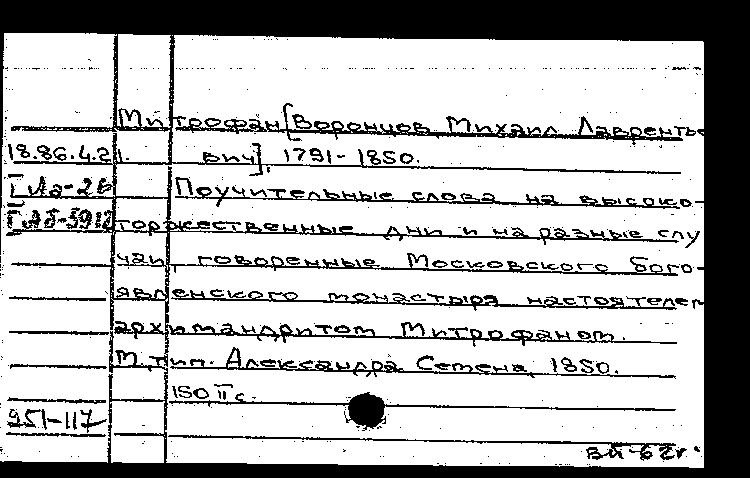 Митрофан [Воронцов, Михаил Лаврентье
18.86.4.21. вич], 1791-1850.
I Аа-26 Поучительные слова на высоко-
I Аб-5912 торжественные дни и на разные слу
чаи, говоренные Московского бого-
явленского монастыря настоятелем
архимандритом Митрофаном.
М., тип. Александра Семена, 1850.
150, II с.
951-117
вй-62г.